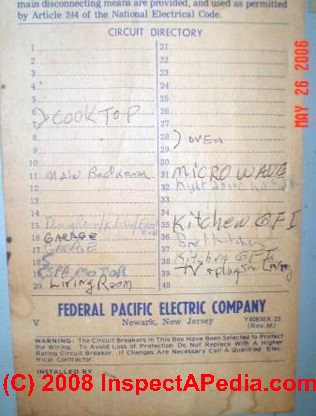 main disconnecting means are provided, and used as permitted
by Article 384 of the National Electrical Code.
CIRCUIT DIRECTORY
1 21
2 22
3 23
4 24
5 25
6 } COOK TOP 26
7 27
8 28
9 29 } OVEN
10 30
11 Main Bedroom 31 MICROWAVE
12 32
13 33
14 34
15 35 Kitchen GFI
16 GARAGE 36
17 37
18 38 Kitchen GFI
19 SPA MOTOR 39 TV + plugs in Living
20 Living Room 40
FEDERAL PACIFIC ELECTRIC COMPANY
V Newark, New Jersey
(Rev.M)
WARNING: The Circuit Breakers in This Box Have Been Selected to Protect
the Wiring. To Avoid Loss of Protection Do Not Replace With A Higher
Rating Circuit Breaker. If Changes Are Necessary Call A Qualified Elec-
trical Contractor.
INSTALLED BY
MAY 26 2006
(C) 2008 InspectAPedia.com